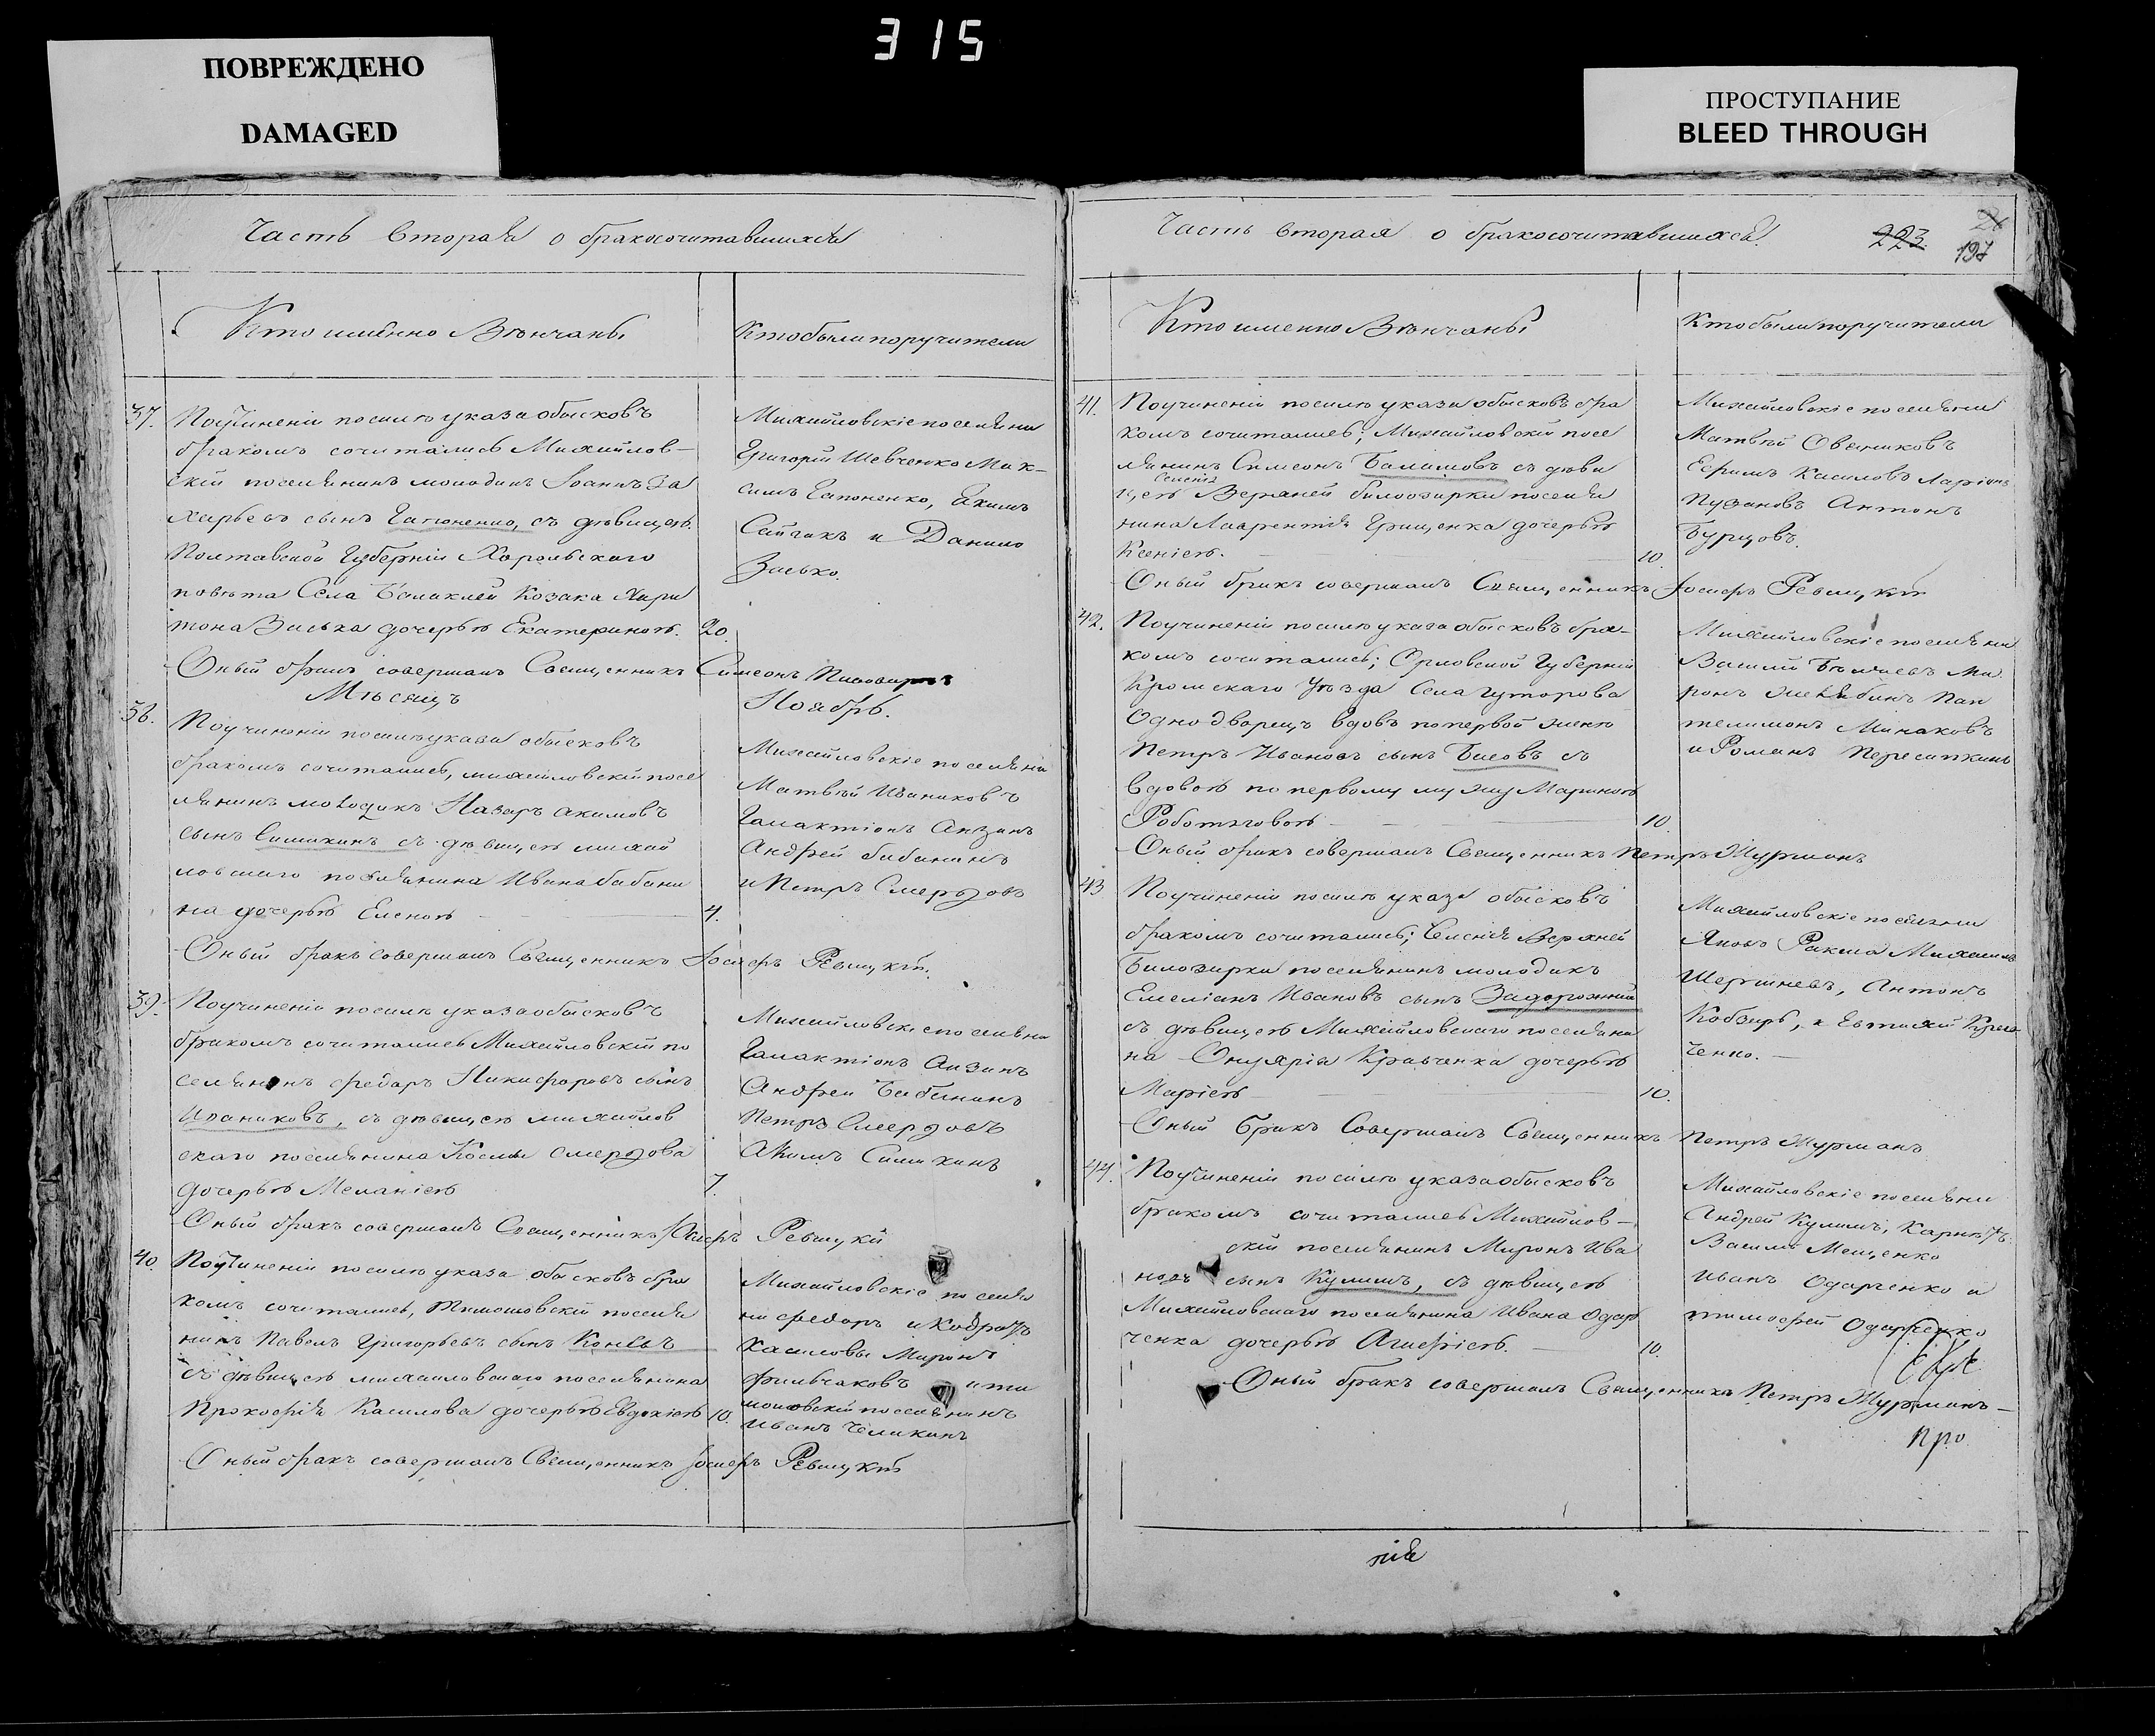 315
ПОВРЕЖДЕНО
DAMAGED
ПРОСТУПАНИЕ
BLEED THROUGH
Часть вторая о бракосочитавшихся
Кто именно Вѣнчаны
Кто были поручители
37.
По учиненіи по силѣ указа обысковъ
бракомъ сочитались Михайлов-
скій поселянинъ молодикъ Іоаннъ За
харьевъ сынъ Гапоненко, съ дѣвицею
Полтавской Губерніи Хорольскаго
повѣта Села Балаклеи Козака Хари
тона Заська дочерью Екатериною. 20.
Михайловскіе поселяни
Григорій Шевченко Мак-
симъ Гапоненко, Акимъ
Сайгакъ и Данило
Засько.
Оный бракъ совершалъ Священникъ Симеонъ
Мѣсяцъ Ноябрь.
38.
По учиненіи по силѣ указа обысковъ
бракомъ сочитались, михайловскій посе
лянинъ молодикъ Назаръ Акимовъ
сынъ Симахинъ съ дѣвицею михай
ловскаго поселянина Ивана Бабани
на дочерью Еленою 4.
Михайловскіе поселяни
Матвѣй Иваниковъ
Галактіонъ Анзинъ
Андрей Бабанинъ
и Петръ Смердовъ
Оный бракъ совершалъ Священникъ Іосифъ Ревуцкій.
39.
По учиненіи по силѣ указа обысковъ
бракомъ сочитались Михайловскій по
селянинъ Федоръ Никифоровъ сынъ
Иваниковъ, съ дѣвицею михайлов
скаго поселянина Космы Смердова
дочерью Меланіею 7.
Михайловскіе поселяни
Галактіонъ Анзинъ
Андреи Бабанинъ
Петръ Смердовъ
Акимъ Симахинъ
Оный бракъ совершалъ Священникъ Іосифъ Ревуцкій
40.
По учиненіи по силѣ указа обысковъ бра
комъ сочитались, Тимошовскій поселя
нинъ Павелъ Григорьевъ сынъ Коневъ
съ дѣвицею михаиловскаго поселянина
Прокофія Касилова дочерью Евдокіею 10.
Михайловскіе поселя
ни Федоръ и Кодратъ
Касиловы Миронъ
Фильчаковъ и ти
мошовскій поселянинъ
Иванъ Чемикинъ
Оный бракъ совершалъ Священникъ Іосифъ Ревуцкій
Часть вторая о бракосочитавшихся.
223
26
197
Кто именно Вѣнчаны
Кто были поручители
41.
По учиненіи по силѣ указа обысковъ бра
комъ сочитались; Михайловскій посе
лянинъ Симеонъ Балашовъ съ дѣви
селенія
цею Верхней Билоозирки поселя
нина Лаврентія Грищенка дочерью
Ксеніею. 10.
Михайловскіе поселяни
Матвѣй Овсяниковъ
Ефимъ Касиловъ Ларіонъ
Пузановъ Антонъ
Бурцовъ.
Оный бракъ совершалъ Священникъ Іосифъ Ревуцкій
42.
По учиненіи по силѣ указа обысковъ бра-
комъ сочитались; Орловской Губерніи
Кромскаго Уѣзда Села Гуторова
Однодворецъ вдовъ по первой женѣ
Петръ Ивановъ сынъ Басовъ съ
вдовою по первому мужу Мариною
Роботяговою 10.
Михайловскіе поселяни
Василій Бѣляевъ Ми
ронъ Жеребинъ Пан
телимонъ Минаковъ
и Романъ Пересипкинъ
Оный бракъ совершалъ Священникъ Петръ Журманъ
43
По учиненіи по силѣ указа обысковъ
бракомъ сочитались; Селенія Верхней
Билозирки поселянинъ молодикъ
Емеліанъ Ивановъ сынъ Задорожній
съ дѣвицею Михайловскаго поселяни
на Онуфрія Кравченка дочерью
Маріею 10.
Михайловскіе поселяни
Яковъ Ракша Михаилъ
Шершневъ, Антонъ
Кобзирь, и Евтихій Крав
ченко.
Оный Бракъ Совершалъ Священникъ Петръ Журманъ
44.
По учиненіи по силѣ указа обысковъ
бракомъ сочитались Михайлов-
скій поселянинъ Миронъ Ива
новъ сынъ Кулишъ, съ дѣвицею
Михайловскаго поселянина Ивана Одар
ченка дочерью Агафіею. 10.
Михайловскіе поселяни
Андрей Кулишъ, Карпъ
Василь Мещенко
Иванъ Одарченко и
Тимофей Одарченко
Оный бракъ совершалъ Священникъ Петръ Журманъ
про